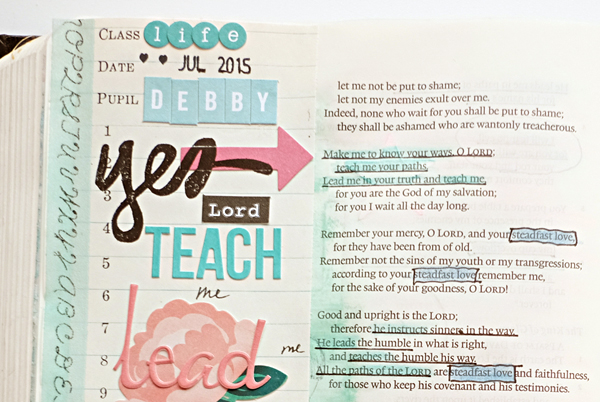 CLASS life
DATE JUL 2015
PUPIL DEBBY
1
yes
3
Lord
4
TEACH
5
6 me
7
lead me
8
9
let me not be put to shame;
let not my enemies exult over me.
Indeed, none who wait for you shall be put to shame;
they shall be ashamed who are wantonly treacherous.
Make me to know your ways, O LORD;
teach me your paths.
Lead me in your truth and teach me,
for you are the God of my salvation;
for you I wait all the day long.
Remember your mercy, O LORD, and your steadfast love,
for they have been from of old.
Remember not the sins of my youth or my transgressions;
according to your steadfast love remember me,
for the sake of your goodness, O LORD!
Good and upright is the LORD;
therefore he instructs sinners in the way.
He leads the humble in what is right,
and teaches the humble his way.
All the paths of the LORD are steadfast love and faithfulness,
for those who keep his covenant and his testimonies.